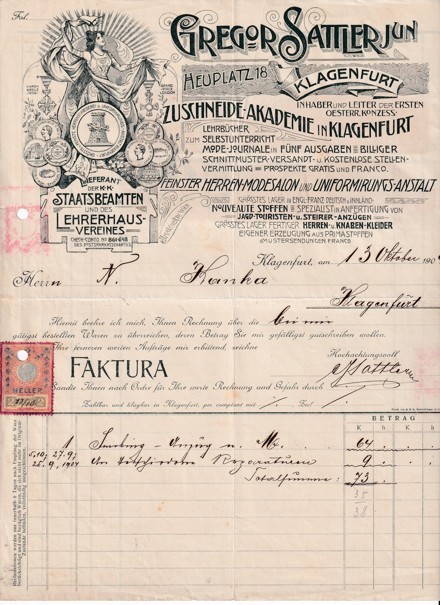 Fol.
GREGOR SATTLER JUN
HEUPLATZ 18
KLAGENFURT
INHABER UND LEITER DER ERSTEN
OESTERR. KONZESS.
ZUSCHNEIDE-AKADEMIE IN KLAGENFURT
LEHRBÜCHER
ZUM SELBSTUNTERRICHT
MODE-JOURNALE IN FÜNF AUSGABEN BILLIGER
SCHNITTMUSTER-VERSANDT U. KOSTENLOSE STELLEN-
VERMITTLUNG = PROSPEKTE GRATIS UND FRANCO.
FEINSTER HERREN-MODESALON UND UNIFORMIRUNGS-ANSTALT
GRÖSSTES LAGER IN ENGL. FRANZ. DEUTSCH U. INLÄND.
NOUVEAUTÉ STOFFEN SPEZIALIST IN ANFERTIGUNG VON
JAGD-TOURISTEN- U. STEIRER-ANZÜGEN
GRÖSSTES LAGER FERTIGER HERREN- U. KNABEN-KLEIDER
EIGENER ERZEUGUNG AUS PRIMASTOFFEN
MUSTERSENDUNGEN FRANCO
LIEFERANT
DER K.K.
STAATSBEAMTEN
UND DES
LEHRERHAUS-
VEREINES
Klagenfurt, am 13 Oktober 190
Herrn N. Hanka
Klagenfurt
Hiermit beehre ich mich, Ihnen Rechnung über die bei mir
gütigst bestellten Waren zu überreichen, deren Betrag Sie mir gefälligst gutschreiben wollen.
Ihre ferneren werten Aufträge mir erbittend, zeichne
Hochachtungsvoll
G Sattler
FAKTURA
HELLER
Sandte Ihnen nach Order für Ihre werte Rechnung und Gefahr durch
Zahlbar und klagbar in Klagenfurt, per comptant mit % Sc.
BETRAG
K h K h
1 Smoking-Anzug u. M. 64
5.10, 27.9,
25.9.1904 An verschiedenen Reparaturen 9
Totalsumme: 73
35
38